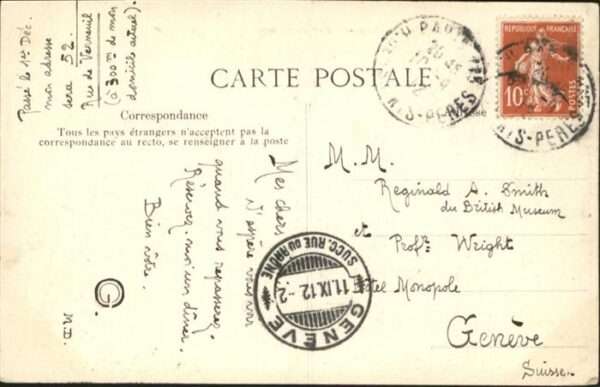 Passé le 1er Déc.
mon adresse
sera 52
Rue de Verneuil
(à 300m de mon
domicile actuel)
CARTE POSTALE
Correspondance
Tous les pays étrangers n'acceptent pas la
correspondance au recto, se renseigner à la poste
Mes chers
J'espère vous voir
quand vous repasserez.
Réservez-moi un dîner.
Bien vôtre.
M.D.
RÉPUBLIQUE FRANÇAISE
10c
POSTES
STS-PERES
STS-PERES
M.M.
Reginald A. Smith
du British Museum
et
Profr Wright
Hôtel Monopole
Genève
Suisse
GENÈVE
11.IX.12.-2
SUCC. RUE DU RHÔNE